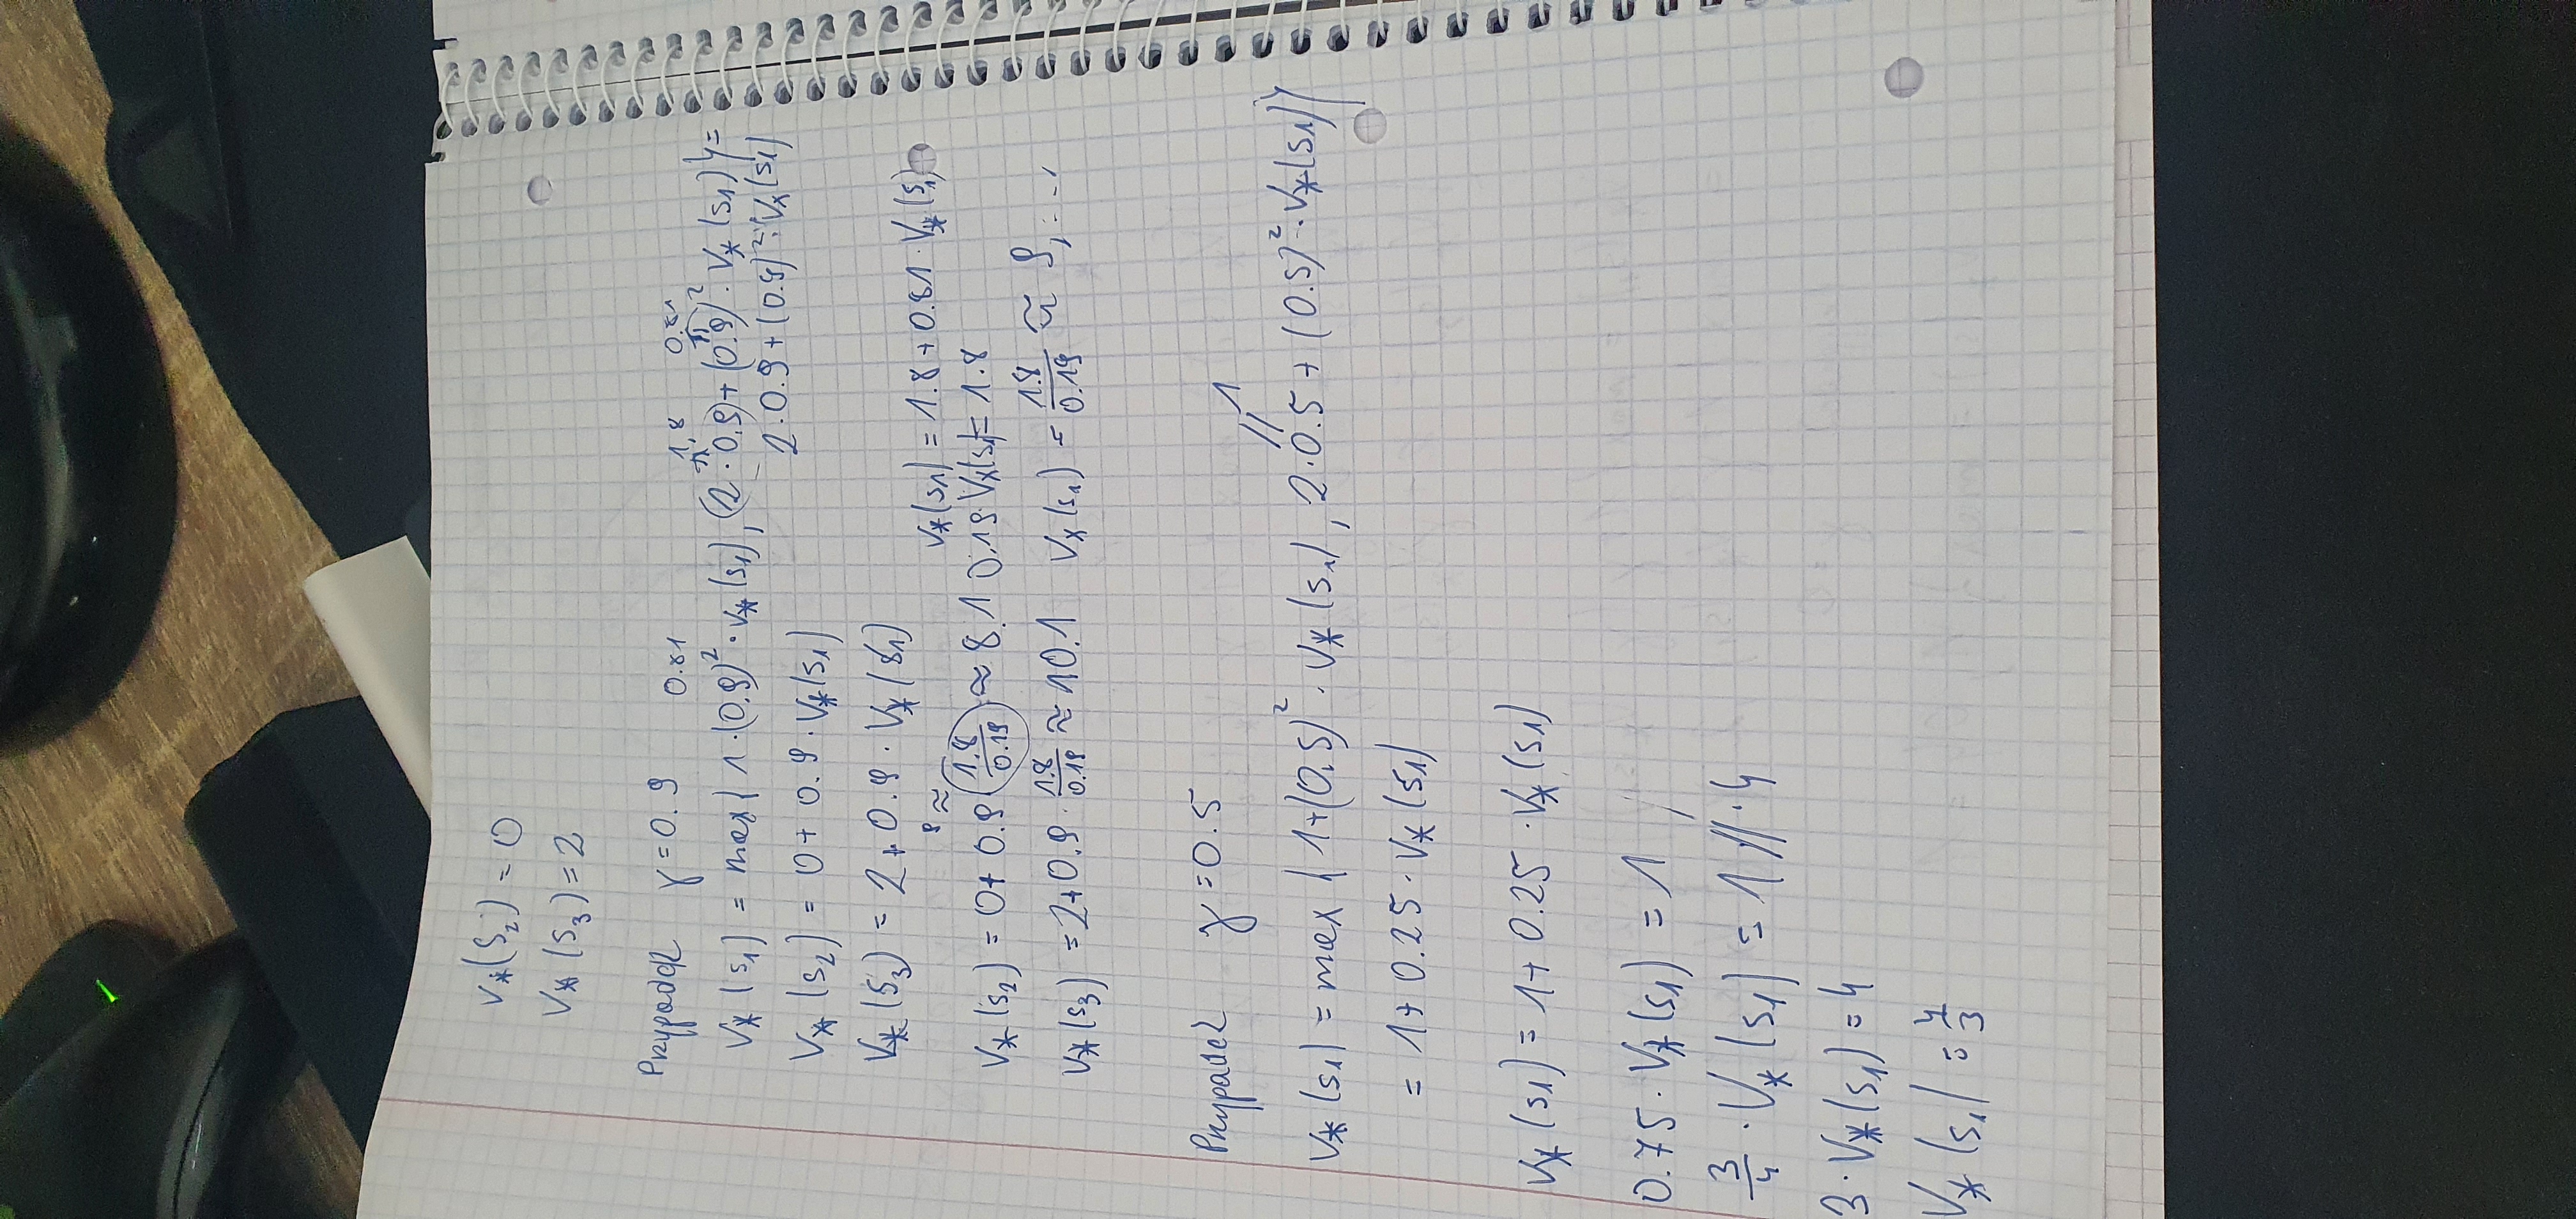 V*(S₂) = 0
V*(S₃) = 2
Przypadek γ = 0.9
0.81 1.8 0.81
V*(s₁) = max{ 1·(0.9)²·V*(s₁), (2·0.9)+(0.9)²·V*(s₁)} =
2·0.9+(0.9)²·V*(s₁)
V*(s₂) = 0+ 0.9·V*(s₁)
V*(S₃) = 2+0.9·V*(s₁)
V*(s₁) = 1.8+0.81·V*(s₁)
9 ≈
V*(s₂) = 0+ 0.9 (1.8/0.19) ≈ 8.1
0.19·V*(s₁) = 1.8
V*(s₃) = 2+0.9·1.8/0.19 ≈ 10.1
V*(s₁) = 1.8/0.19 ≈ 9,...
Przypadek γ = 0.5
1
V*(s₁) = max{ 1+(0.5)²·V*(s₁), 2·0.5+(0.5)²·V*(s₁)}
= 1+0.25·V*(s₁)
V*(s₁) = 1+0.25·V*(s₁)
0.75·V*(s₁) = 1 /
3/4·V*(s₁) = 1 //·4
3·V*(s₁) = 4
V*(s₁) = 4/3